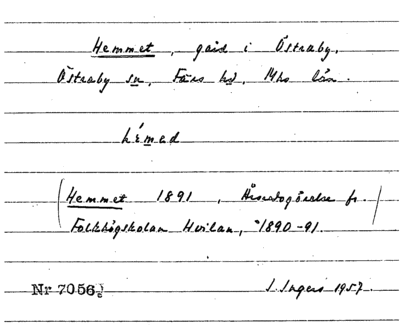 Hemmet, gård i Östraby,
Östraby sn, Färs hd, Mhs län.
hémed
(Hemmet 1891, Årsredogörelse fr.)
Folkhögskolan Hvilan, 1890-91.
Nr 7056
I. Ingers 1957.